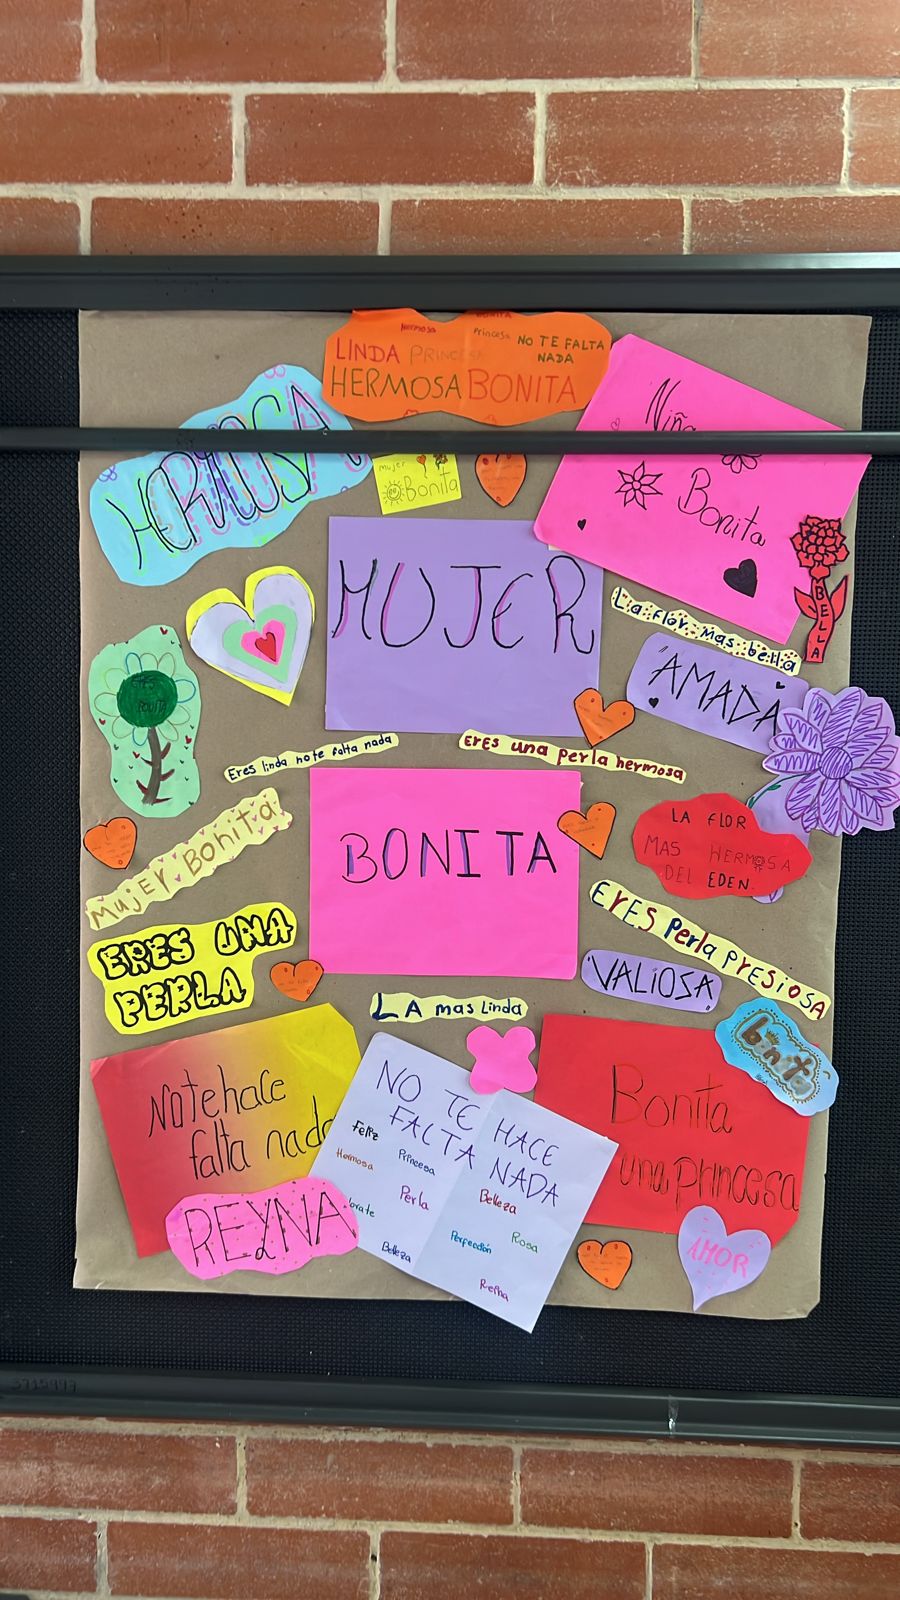 Hermosa
BONITA
Princesa
NO TE FALTA
NADA
LINDA PRINCESA
HERMOSA BONITA
HERMOSA
mujer
Bonita
Niña
Bonita
BELLA
MUJER
La flor mas bella
"AMADA"
Eres linda no te falta nada
Eres una perla hermosa
BONITA
LA FLOR
MAS HERMOSA
DEL EDEN.
Mujer Bonita
ERES UNA
PERLA
ERES Perla PRESIOSA
"VALIOSA"
LA mas Linda
bonita
No te hace
falta nada
NO TE HACE
FALTA NADA
Feliz
Hermosa
Princesa
Perla
Belleza
Belleza
Perfección
Rosa
Reina
Bonita
una princesa
REYNA
AMOR
3715997